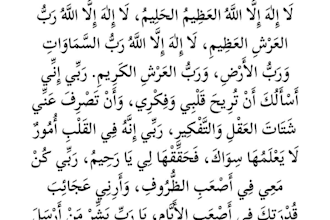 لَا إِلَهَ إِلَّا اللَّهُ العَظِيمُ الحَلِيمُ، لَا إِلَهَ إِلَّا اللَّهُ رَبُّ
العَرْشِ العَظِيمِ، لَا إِلَهَ إِلَّا اللَّهُ رَبُّ السَّمَاوَاتِ
وَرَبُّ الأَرْضِ، وَرَبُّ العَرْشِ الكَرِيمِ. رَبِّي إِنِّي
أَسْأَلُكَ أَنْ تُرِيحَ قَلْبِي وَفِكْرِي، وَأَنْ تَصْرِفَ عَنِّي
شَتَاتَ العَقْلِ وَالتَّفْكِيرِ، رَبِّي إِنَّهُ فِي القَلْبِ أُمُورٌ
لَا يَعْلَمُهَا سِوَاكَ، فَحَقِّقْهَا لِي يَا رَحِيمُ، رَبِّي كُنْ
مَعِي فِي أَصْعَبِ الظُّرُوفِ، وَأَرِنِي عَجَائِبَ
قُدْرَتِكَ فِي أَصْعَبِ الأَيَّامِ، يَا رَبِّ بَشِّرْ مَنْ أَرْسَلَ